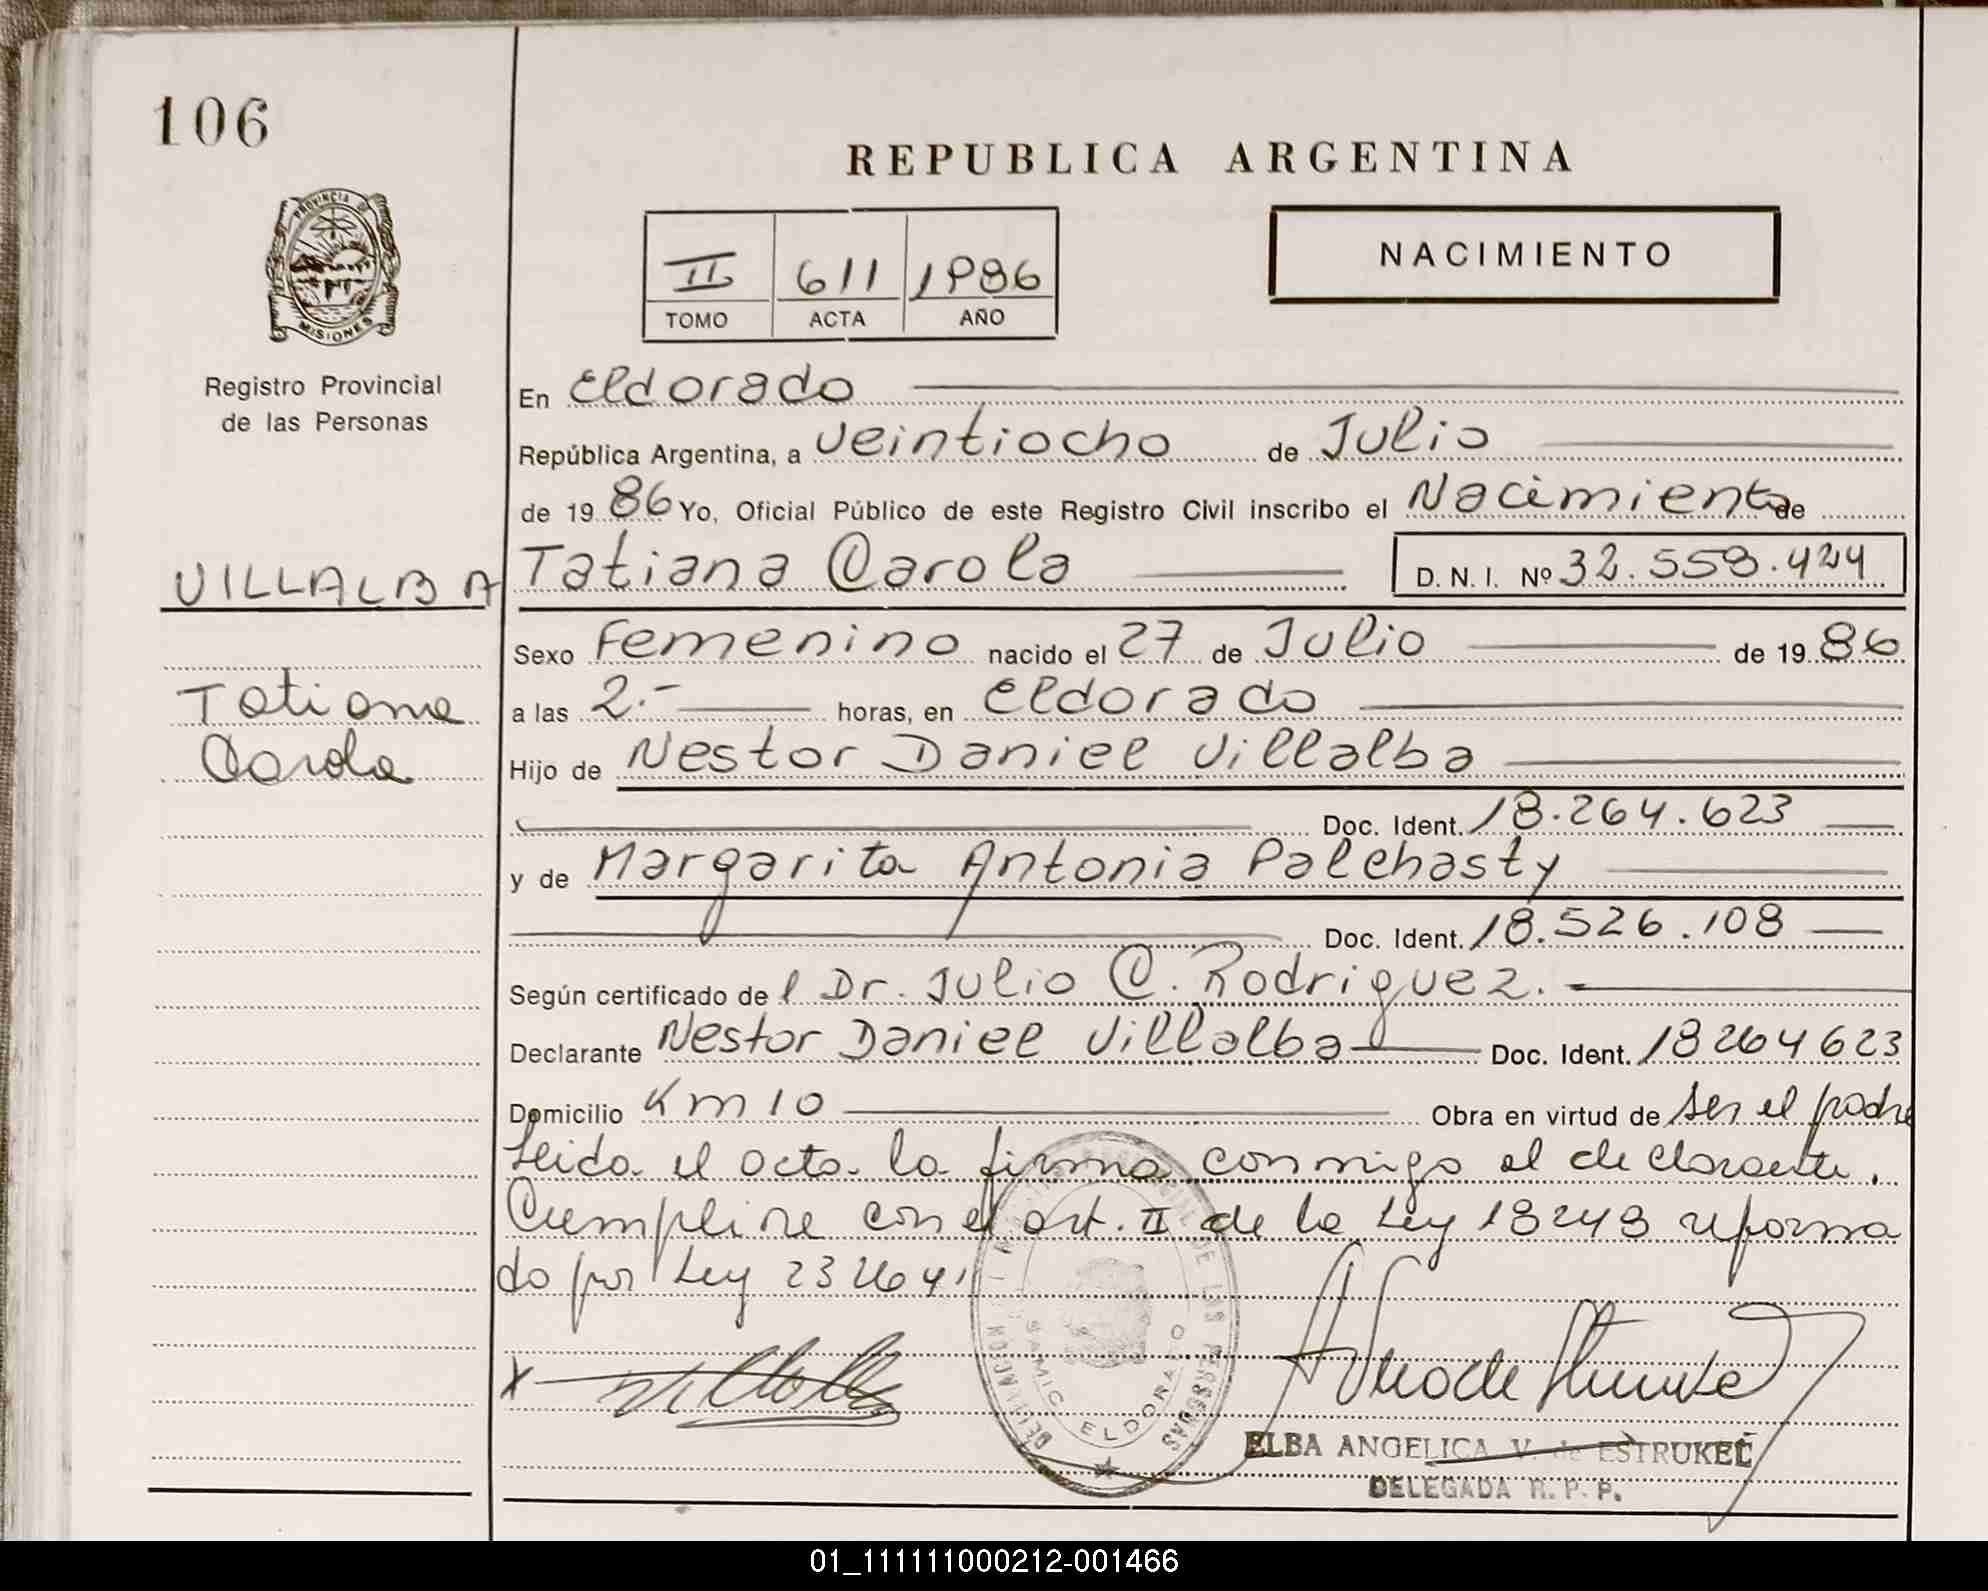 106
REPUBLICA ARGENTINA
PROVINCIA DE
MISIONES
NACIMIENTO
II 611 1986
TOMO ACTA AÑO
Registro Provincial
de las Personas
En Eldorado
República Argentina, a veintiocho de Julio
de 1986 Yo, Oficial Público de este Registro Civil inscribo el Nacimiento de
VILLALBA Tatiana Carola D. N. I. Nº 32.559.424
Sexo Femenino nacido el 27 de Julio de 1986
Tatiana a las 2.- horas, en Eldorado
Carola Hijo de Nestor Daniel Villalba
Doc. Ident. 18.264.623
y de Margarita Antonia Palchasty
Doc. Ident. 18.526.108
Según certificado del Dr. Julio C. Rodriguez.
Declarante Nestor Daniel Villalba Doc. Ident. 18264623
Domicilio Km 10 Obra en virtud de ser el padre
Leida el acta la firma conmigo el declarante.
Cumpline con el art. II de la Ley 18248 reforma
do por Ley 23264
X Villalba
DE LAS PERSONAS
SAMIC ELDORADO
ELBA ANGELICA V. de ESTRUKEL
DELEGADA R. P. P.
01_111111000212-001466